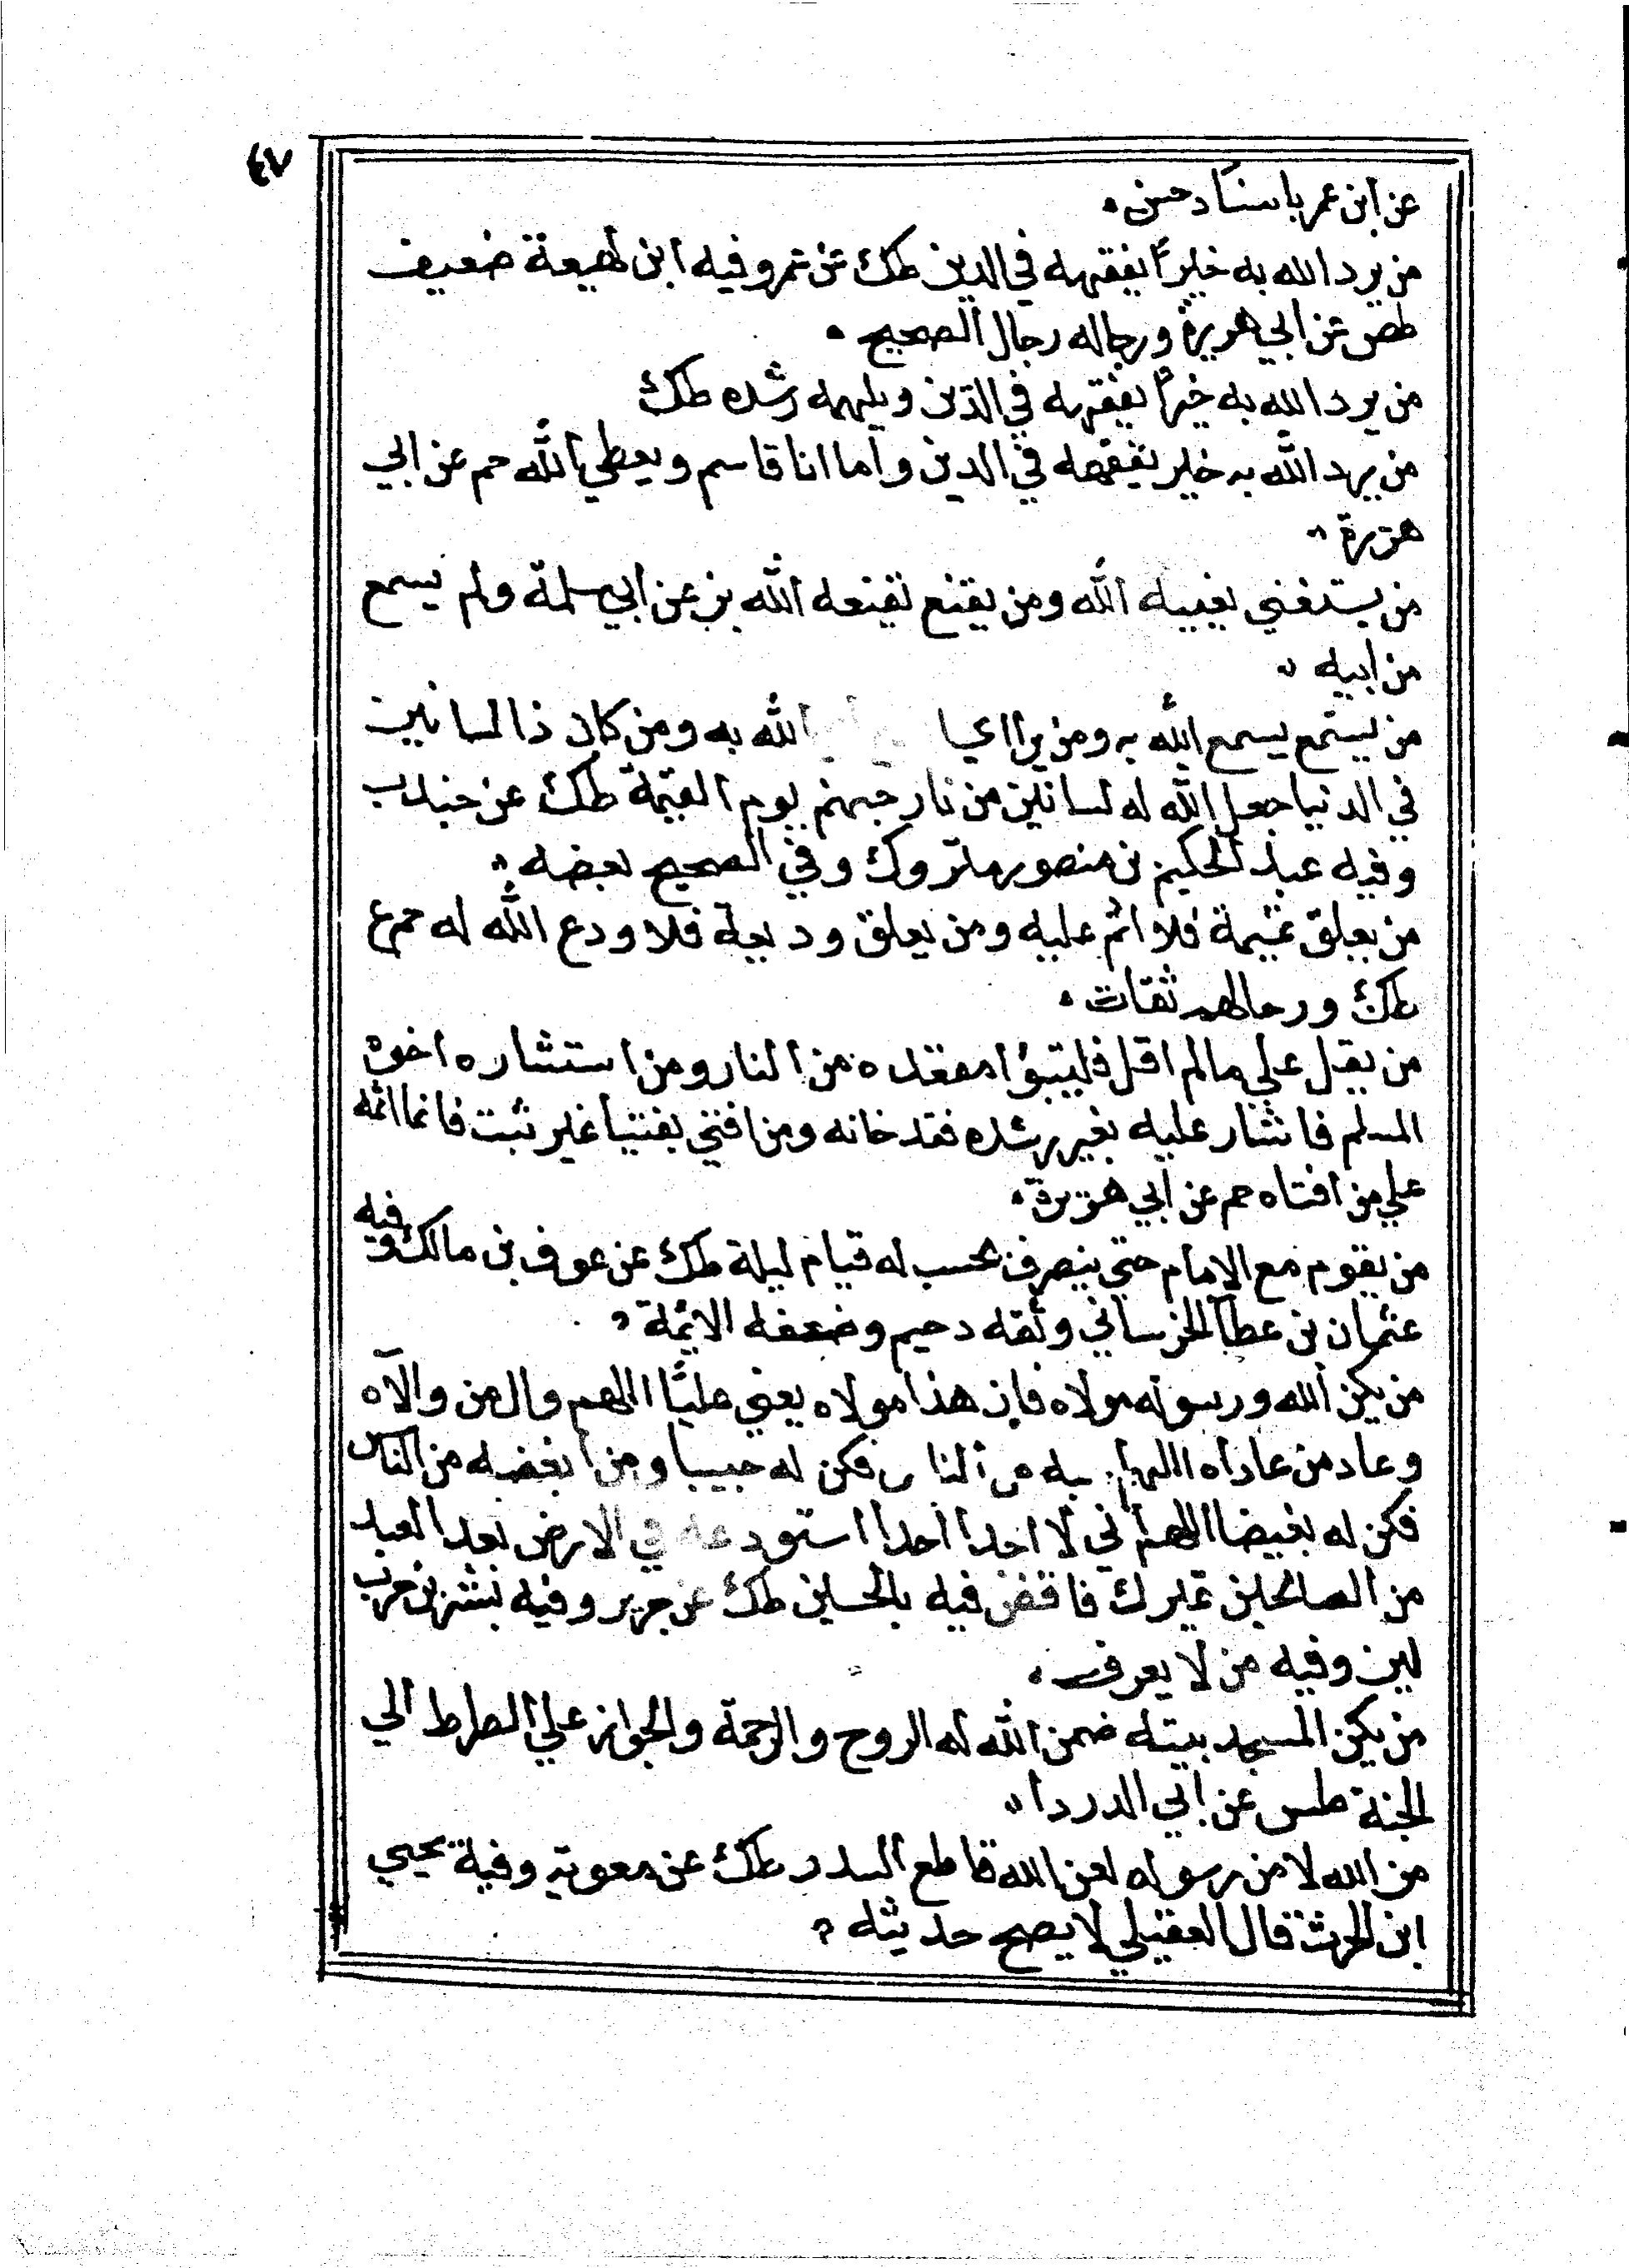 ٤٧
عن ابن عمر باسناد حسن
من يرد الله به خيرا يفقهه في الدين طك عن عمر وفيه ابن لهيعة ضعيف
طص عن ابي هريرة ورجاله رجال الصحيح
من يرد الله به خيرا يفقهه في الدين ويلهمه رشده طك
من يرد الله به خير يفقهه في الدين واما انا قاسم ويعطي الله حم عن ابي
هريرة
من يستغني يغنيه الله ومن يقنع يقنعه الله بز عن ابي سلمة ولم يسمع
من ابيه
من يستمع يسمع الله به ومن يرااي الله به ومن كان ذا لسانين
في الدنيا جعل الله له لسانين من نار جهنم يوم القيمة طك عن جندب
وفيه عبد الحكيم بن منصور متروك وفي الصحيح بعضه
من يعلق تميمة فلا اتم عليه ومن يعلق وديعة فلا ودع الله له حم ع
طك ورجالهم ثقات
من يقل علي مالم اقل فليتبؤا مقعده من النار ومن استشاره اخوه
المسلم فاشار عليه بغير رشده فقد خانه ومن افتي بفتيا غير ثبت فانما اثمه
علي من افتاه حم عن ابي هريرة
من يقوم مع الامام حتي ينصرف يحسب له قيام ليلة طك عن عوف بن مالك وفيه
عثمان بن عطآ الخرساني وثقه دحيم وضعفه الائمة
من يكن الله ورسوله مولاه فان هذا مولاه يعني عليًا اللهم وال من والآه
وعاد من عاداه اللهم من الناس فكن له حبيبا ومن ابغضه من الناس
فكن له بغيضا اللهم اني لا اجد احدا استودعه في الارض بعد العبد
من الصالحين غيرك فاقض فيه بالحسين طك عن جرير وفيه بشر بن حرب
لين وفيه من لا يعرف
من يكن المسجد بيته ضمن الله له الروح والرحمة والجواز علي الصراط الي
الجنة طس عن ابي الدردا
من الله لا من رسوله لعن الله قاطع السدر طك عن معوية وفية يحيي
ابن الحرث قال العقيلي لا يصح حديثه